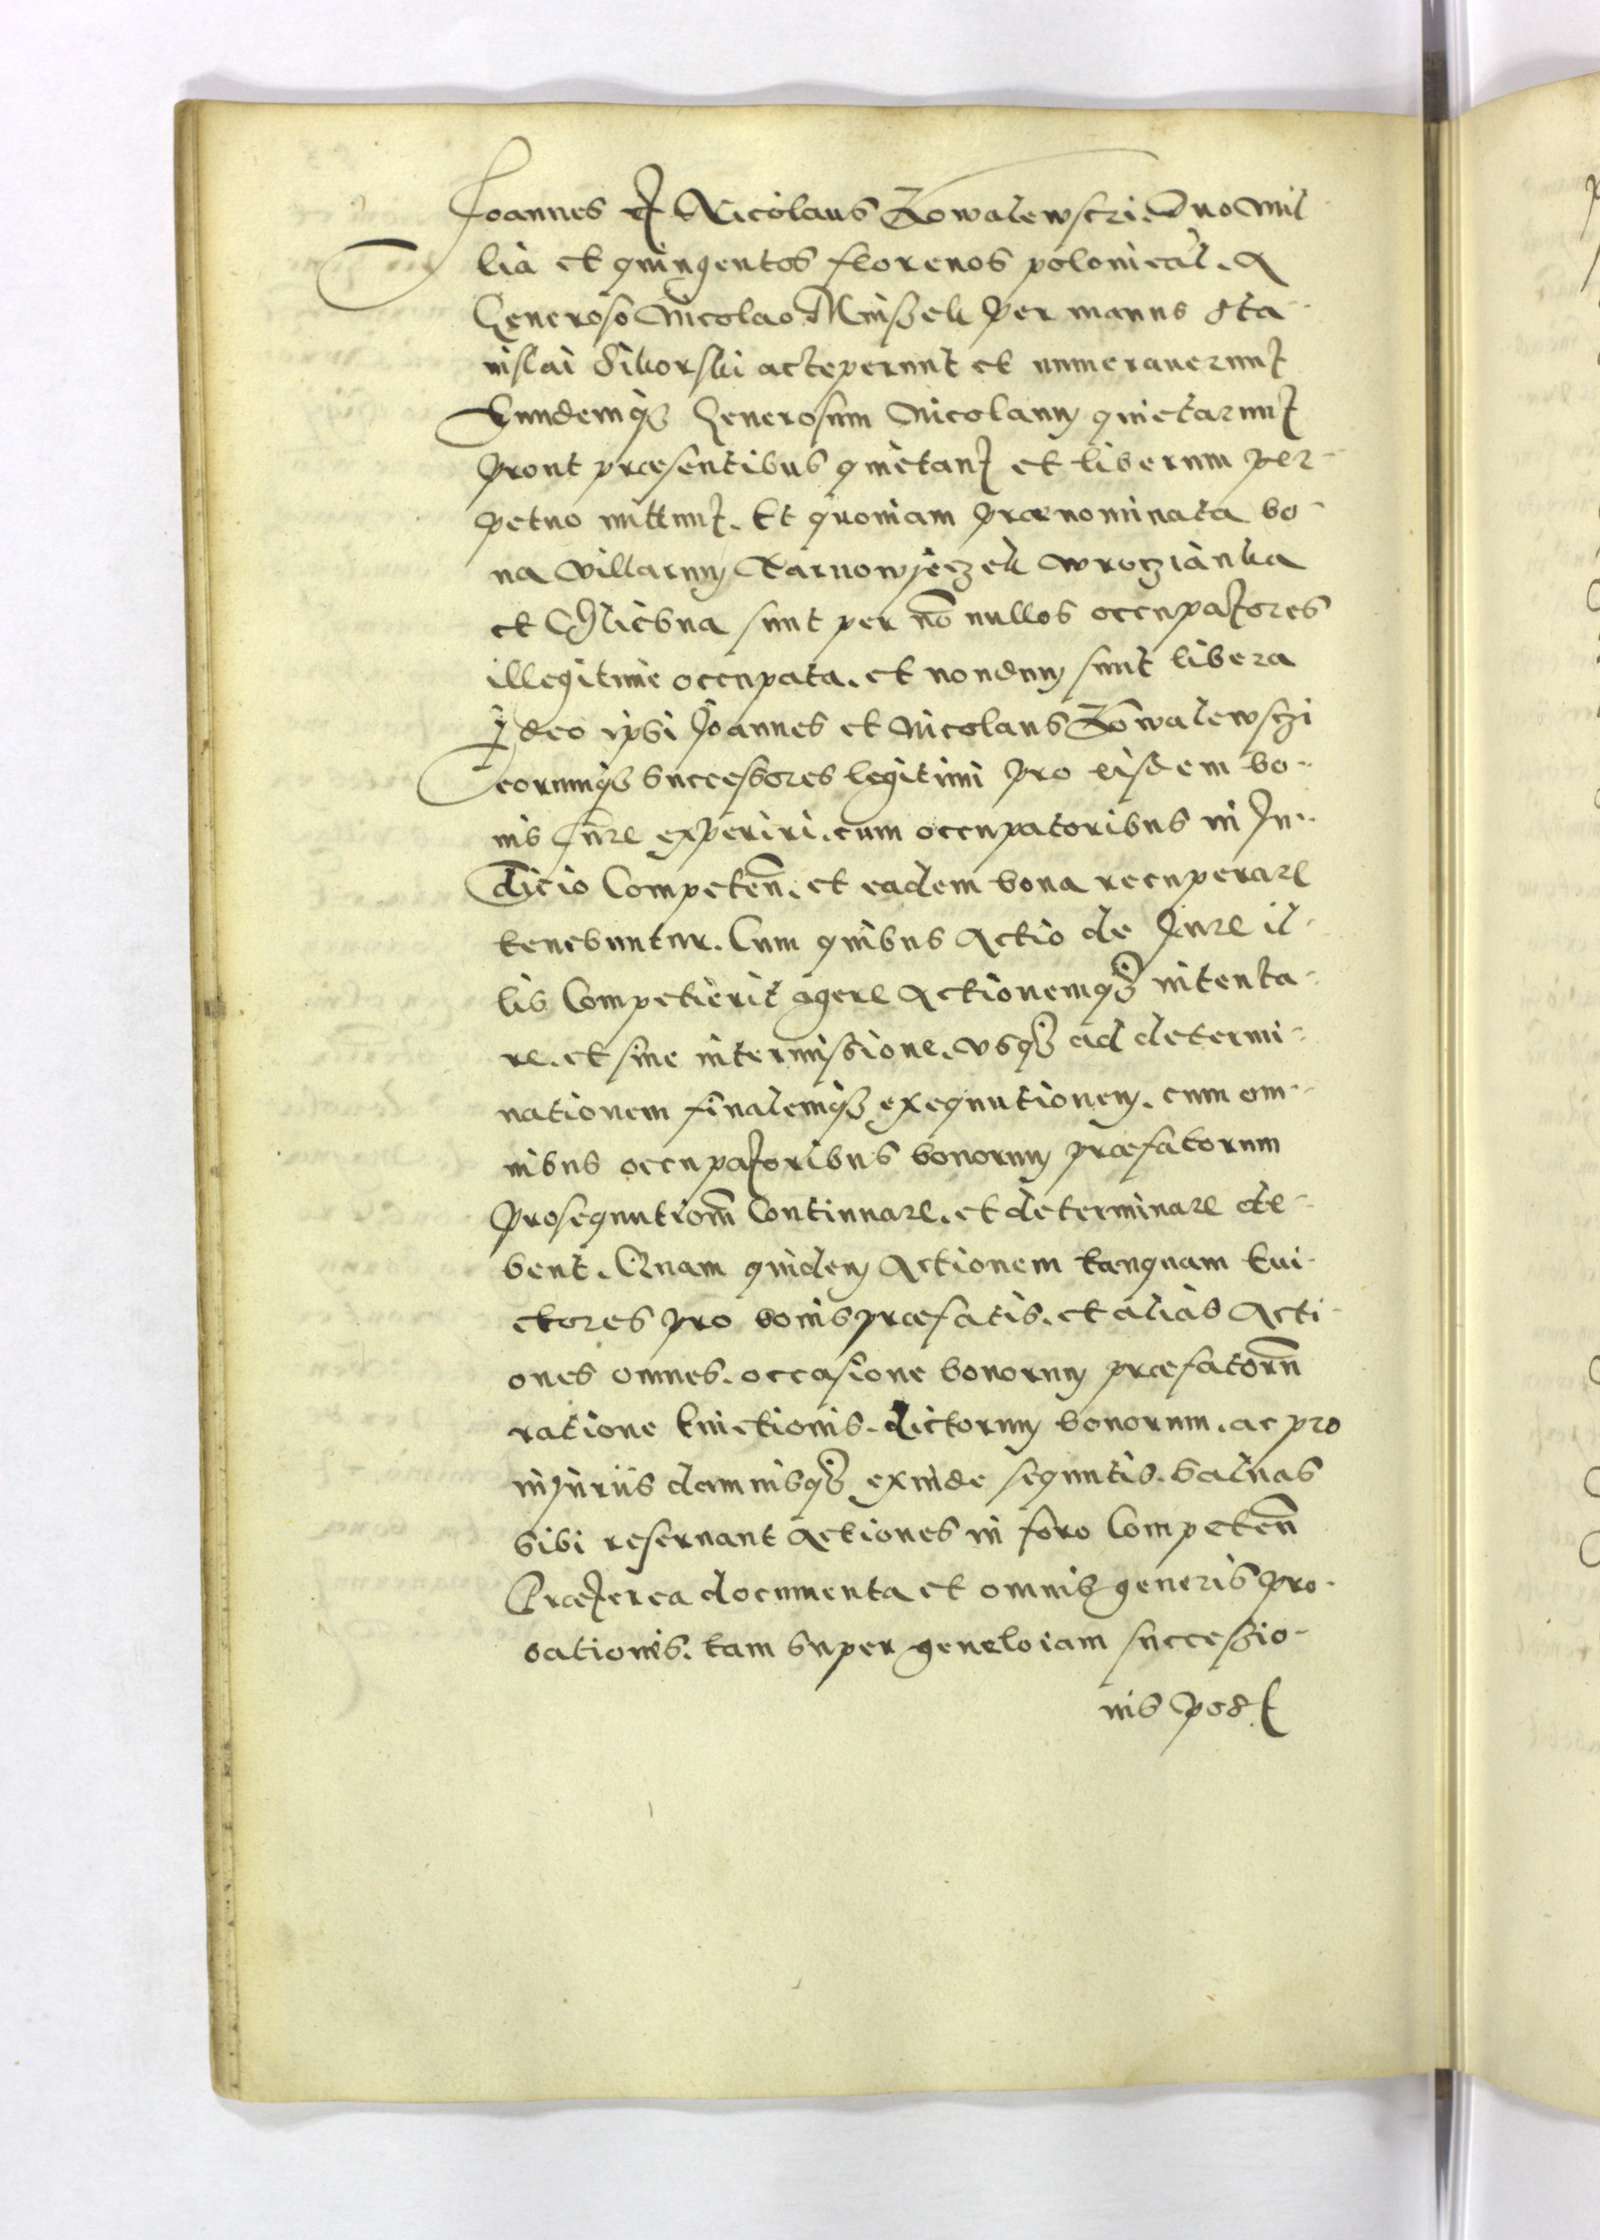 Joannes et Nicolaus Kowalewsczi. Duo mil-
lia et quingentos florenos polonical. A
Generoso Nicolao Mniszek per manus Sta-
nislai Sikorski acceperunt et numeraverunt
Eundemq3 Generosum Nicolaum quietarunt
prout præsentibus quietant et liberum per-
petuo mittunt. Et quoniam prænominata bo-
na villarum Tarnowjeczek Wroczianka
et Chlebna sunt per no nullos occupatores
illegitime occupata. et nondum sunt libera
Ideo ipsi Joannes et Nicolaus Kowalewsczi
eorumq3 successores legitimi pro eisdem bo-
nis Jure experiri. cum occupatoribus in Ju-
dicio Competen. et eadem bona recuperare
tenebuntur. Cum quibus Actio de Jure il-
lis Competierit agere Actionemq3 intenta-
re. et sine intermissione. usq3 ad determi-
nationem finalemq3 exequutionem. cum om-
nibus occupatoribus bonorum præfatorum
prosequutiom Continuare. et determinare de-
bent. Quam quidem Actionem tanquam Evi-
ctores pro bonis præfatis. et alias Acti-
ones omnes. occasione bonorum præfatorum
ratione Evictionis. dictorum bonorum. ac pro
injuriis damnisq3 exinde sequutis. Salvas
sibi reservant Actiones in foro Competen
Præterea documenta et omnis generis pro-
bationes. tam super geneloiam successio-
nis post